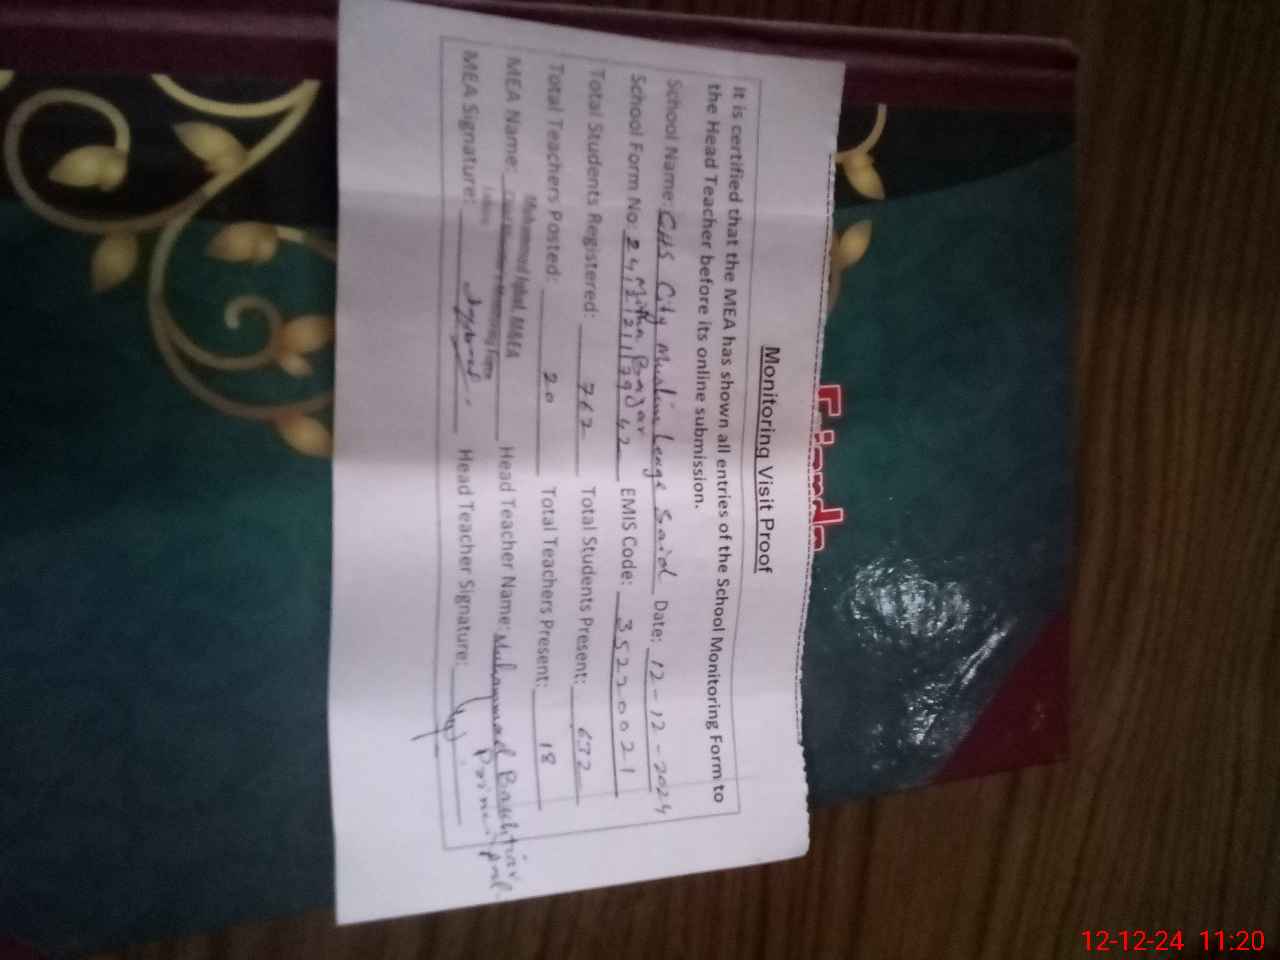 Friends
Monitoring Visit Proof
It is certified that the MEA has shown all entries of the School Monitoring Form to
the Head Teacher before its online submission.
School Name: GHS City Muslim League Said Date: 12-12-2024
Mitha Bazar
School Form No: EMIS Code: 35220021
Total Students Registered: 762 Total Students Present: 672
Total Teachers Posted: 20 Total Teachers Present: 18
Muhammad Iqbal, M&EA
MEA Name: Head Teacher Name: Muhammad
MEA Signature: Head Teacher Signature:
12-12-24 11:20